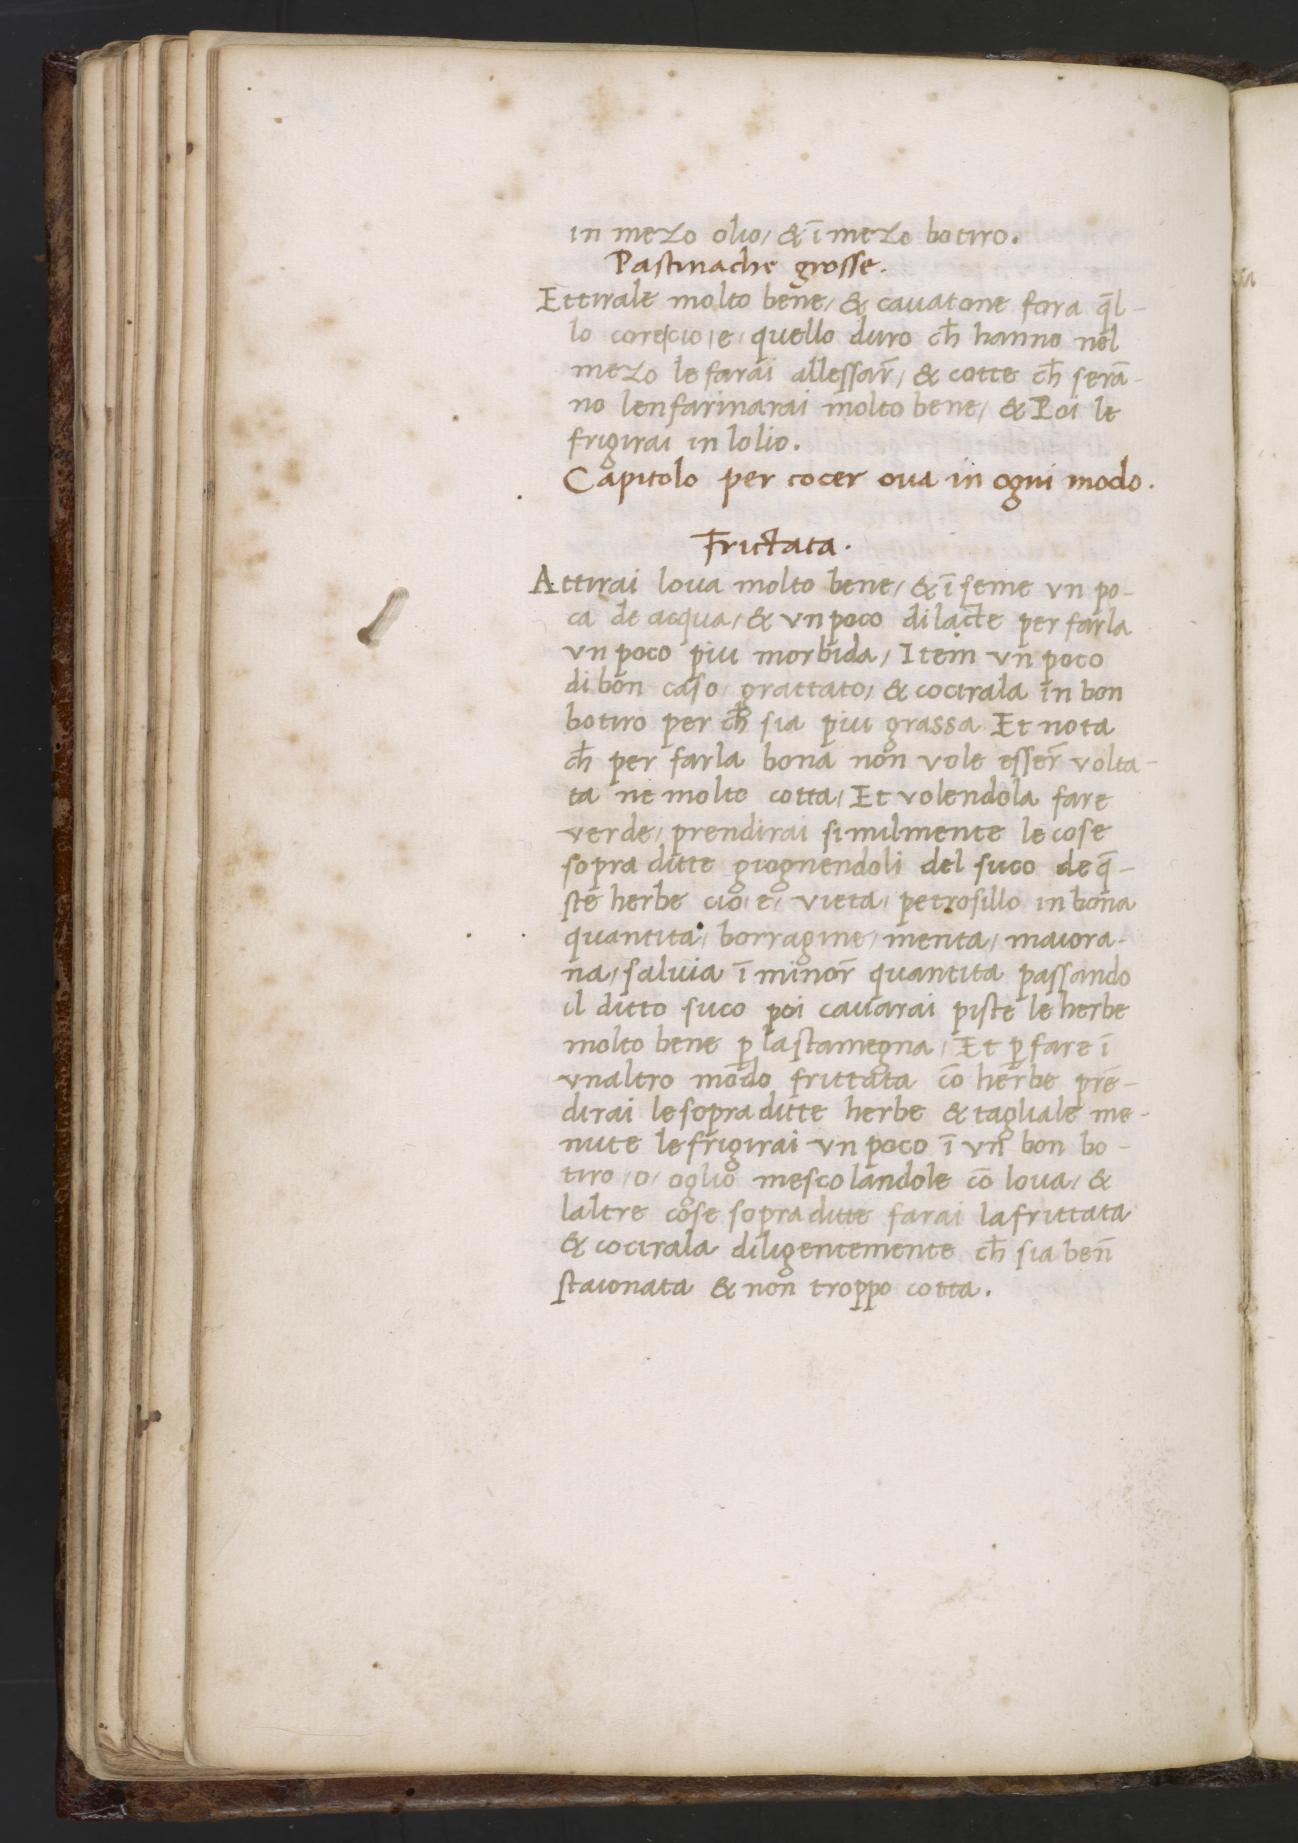 in mezo olio, & ī mezo botiro.
Pastinache grosse.
Ettirale molto bene, & cauatone fora q̄l-
lo corecio, e, quello duro ch̄ hanno nel
mezo le farai allessar̄, & cotte ch̄ serā-
no lenfarinarai molto bene, & Poi le
frigirai in lolio.
Capitolo per cocer oua in ogni modo.
Frictata.
Attirai loua molto bene, & ī seme vn po-
ca de acqua, & vn poco di lacte per farla
vn poco piu morbida, Item vn poco
di bon caso grattato, & cocirala in bon
botiro per ch̄ sia piu grassa Et nota
ch̄ per farla bona non vole esser̄ volta-
ta ne molto cotta, Et volendola fare
verde, prendirai similmente le cose
sopra ditte giognendoli del suco de q̄-
ste herbe cio, e, vieta, petrosillo in bona
quantita, borragine, menta, maiora-
na, saluia ī minor̄ quantita passando
il ditto suco poi cauarai piste le herbe
molto bene p̱ la stamegna, Et p̱ fare ī
vnaltro modo frittata cō herbe prē-
dirai le sopra ditte herbe & tagliale me-
nute le frigirai vn poco ī vn bon bo-
tiro, o, oglio mescolandole cō loua, &
laltre cose sopra ditte farai la frittata
& cocirala diligentemente ch̄ sia ben̄
staionata & non troppo cotta.